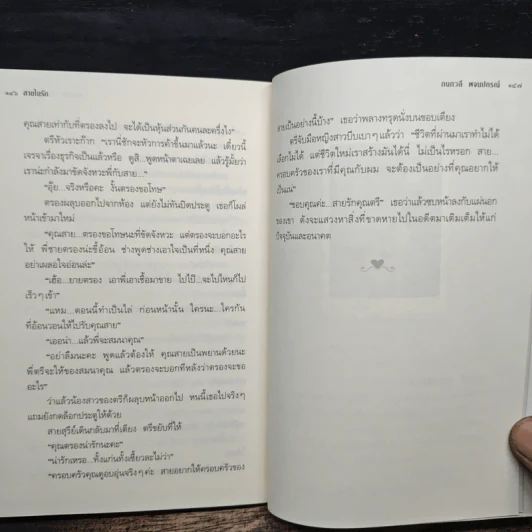 ๑๔๖ สายใยรัก
คุณสายเท่ากับที่ตรองลงไป จะได้เป็นหุ้นส่วนกันคนละครึ่งไง"
ตรีหัวเราะก๊าก "เรานี่ชักจะหัวการค้าขึ้นมาแล้วนะ เดี๋ยวนี้
เจรจาเรื่องธุรกิจเป็นแล้วหรือ ดูสิ..พูดหน้าตาเฉยเลย แล้วรู้มั้ยว่า
เราน่ะกำลังมาขัดจังหวะพี่กับสาย..."
"อุ๊ย...จริงหรือคะ งั้นตรองขอโทษ"
ตรองผลุบออกไปจากห้อง แต่ยังไม่ทันปิดประตู เธอก็โผล่
หน้าเข้ามาใหม่
"คุณสาย...ตรองขอโทษนะที่ขัดจังหวะ แต่ตรองจะบอกอะไร
ให้ พี่ชายตรองน่ะขี้อ้อน ช่างพูดช่างเอาใจเป็นที่หนึ่ง คุณสาย
อย่าเผลอใจอ่อนล่ะ"
"เฮ้อ...ยายตรอง เอาพี่เอาเชื้อมาขาย ไปไป๊...จะไปไหนก็ไป
เร็วๆ เข้า"
"แหม...ตอนนี้ทำเป็นไล่ ก่อนหน้านั้น ใครนะ...ใครกัน
ที่อ้อนวอนให้ไปรับคุณสาย"
"เออน่า...แล้วพี่จะสมนาคุณ"
"อย่าลืมนะคะ พูดแล้วต้องให้ คุณสายเป็นพยานด้วยนะ
พี่ตรีจะให้ของสมนาคุณ แล้วตรองจะบอกทีหลังว่าตรองจะขอ
อะไร"
ว่าแล้วน้องสาวของตรีก็ผลุบหน้าออกไป หนนี้เธอไปจริงๆ
แถมยังกดล็อกประตูให้ด้วย
สายสุรีย์เดินกลับมาที่เตียง ตรีขยับที่ให้
"คุณตรองน่ารักนะคะ"
"น่ารักเหรอ...ทั้งแก่นทั้งเซี้ยวละไม่ว่า"
"ครอบครัวคุณดูอบอุ่นจริงๆ ค่ะ...สายอยากให้ครอบครัวของ
กนกวลี พจนปกรณ์ ๑๔๗
สายเป็นอย่างนี้บ้าง" เธอว่าพลางทรุดนั่งบนขอบเตียง
ตรีจับมือหญิงสาวบีบเบาๆ แล้วว่า "ชีวิตที่ผ่านมาเราทำไม่ได้
เลือกไม่ได้ แต่ชีวิตใหม่เราสร้างมันได้นี่ ไม่เป็นไรหรอก สาย...
ครอบครัวของเราที่มีคุณกับผม จะต้องเป็นอย่างคุณอยากให้
เป็นน่ะ"
"ขอบคุณค่ะ...สายรักคุณตรี" เธอว่าแล้วซบหน้าลงกับแผ่นอก
ของเขา ดังจะแสวงหาสิ่งที่ขาดหายไปในอดีตมาเติมเต็มให้แก่
ปัจจุบันและอนาคต